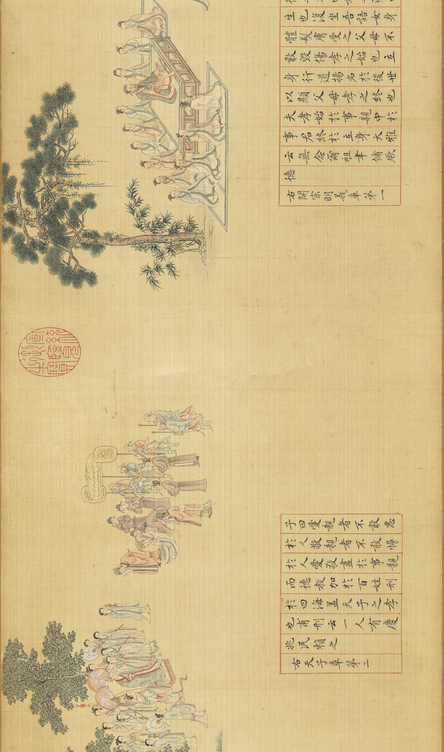 生也復坐吾語女身
體髮膚受之父母不
敢毀傷孝之始也立
身行道揚名於後世
以顯父母孝之終也
夫孝始於事親中於
事君終於立身大雅
云無念爾祖聿脩厥
德
右開宗明義章第一
子曰愛親者不敢惡
於人敬親者不敢慢
於人愛敬盡於事親
而德教加於百姓刑
於四海蓋天子之孝
也甫刑云一人有慶
兆民賴之
右天子章第二